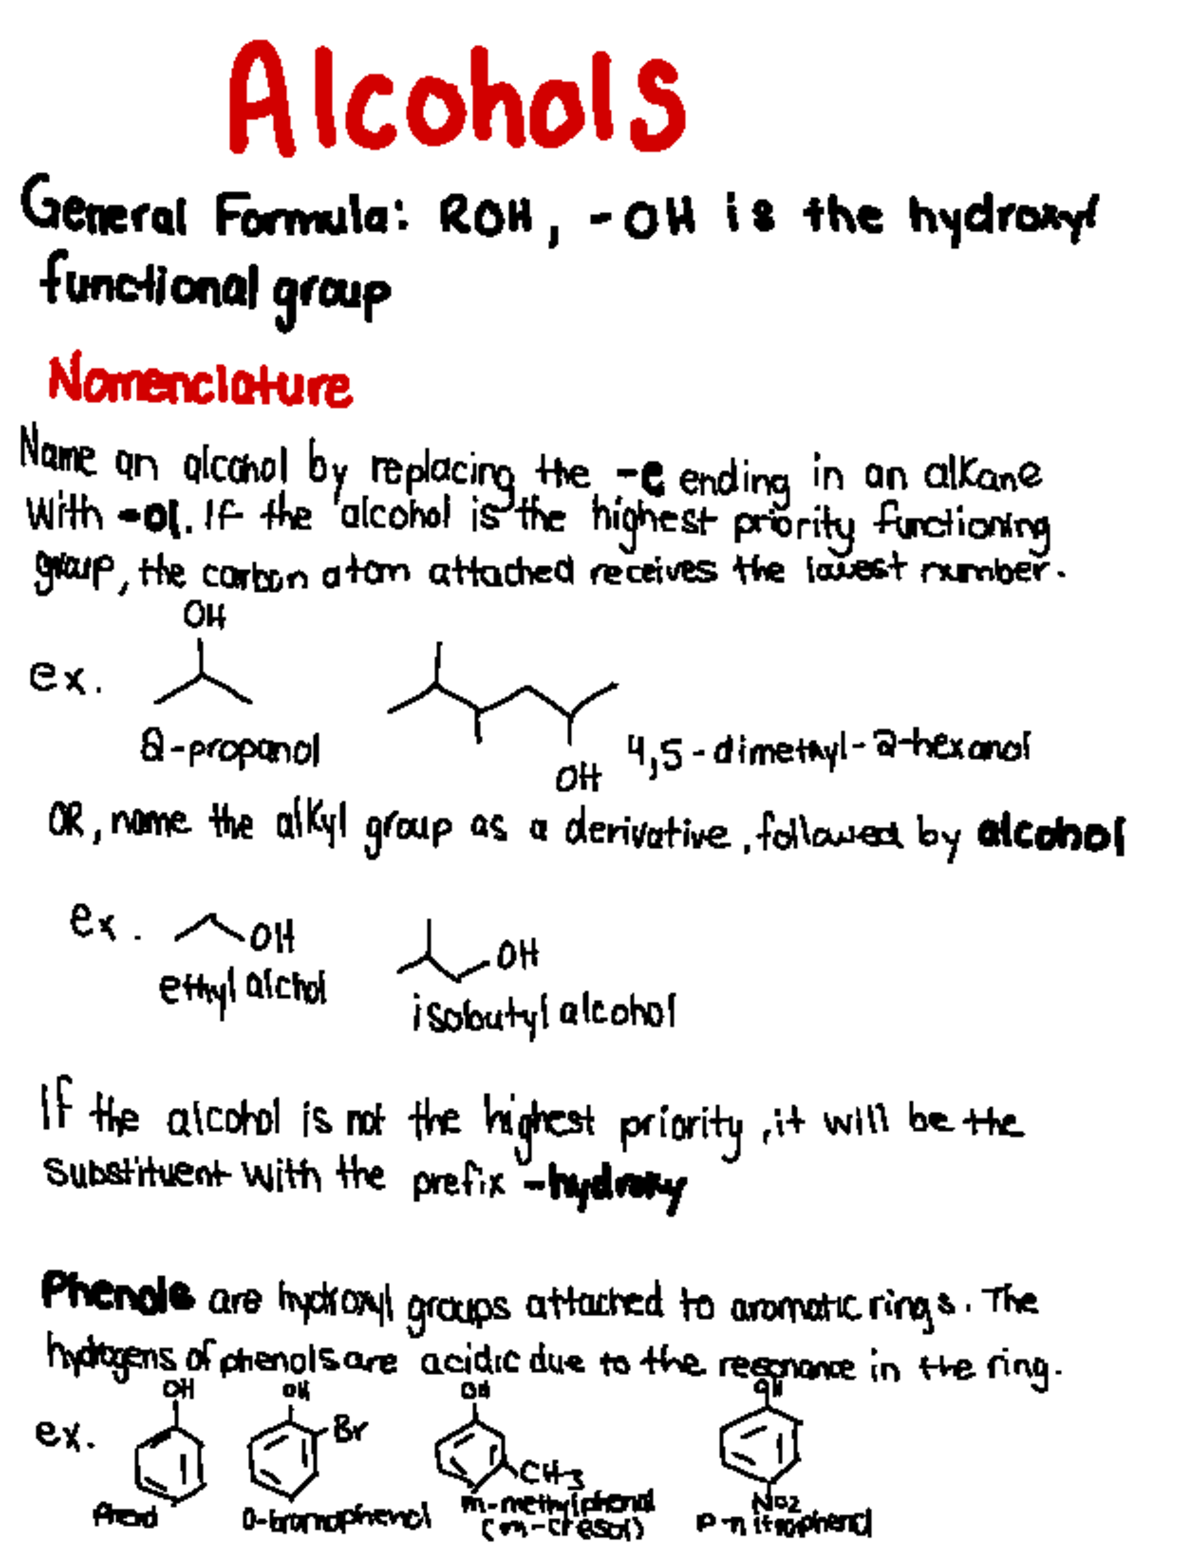 Alcohols
General Formula: ROH, -OH is the hydroxyl
functional group
Nomenclature
Name an alcohol by replacing the -e ending in an alkane
with -ol. If the alcohol is the highest priority functioning
group, the carbon atom attached receives the lowest number.
OH
ex.
2-propanol
OH
4,5-dimethyl-2-hexanol
OR, name the alkyl group as a derivative, followed by alcohol
ex.
OH
ethyl alchol
OH
isobutyl alcohol
If the alcohol is not the highest priority, it will be the
substituent with the prefix -hydroxy
Phenols are hydroxyl groups attached to aromatic rings. The
hydrogens of phenols are acidic due to the resonance in the ring.
OH OH OH OH
ex.
Br
CH3
NO2
Phenol
o-bromophenol
m-methylphenol
(m-cresol)
p-nitrophenol